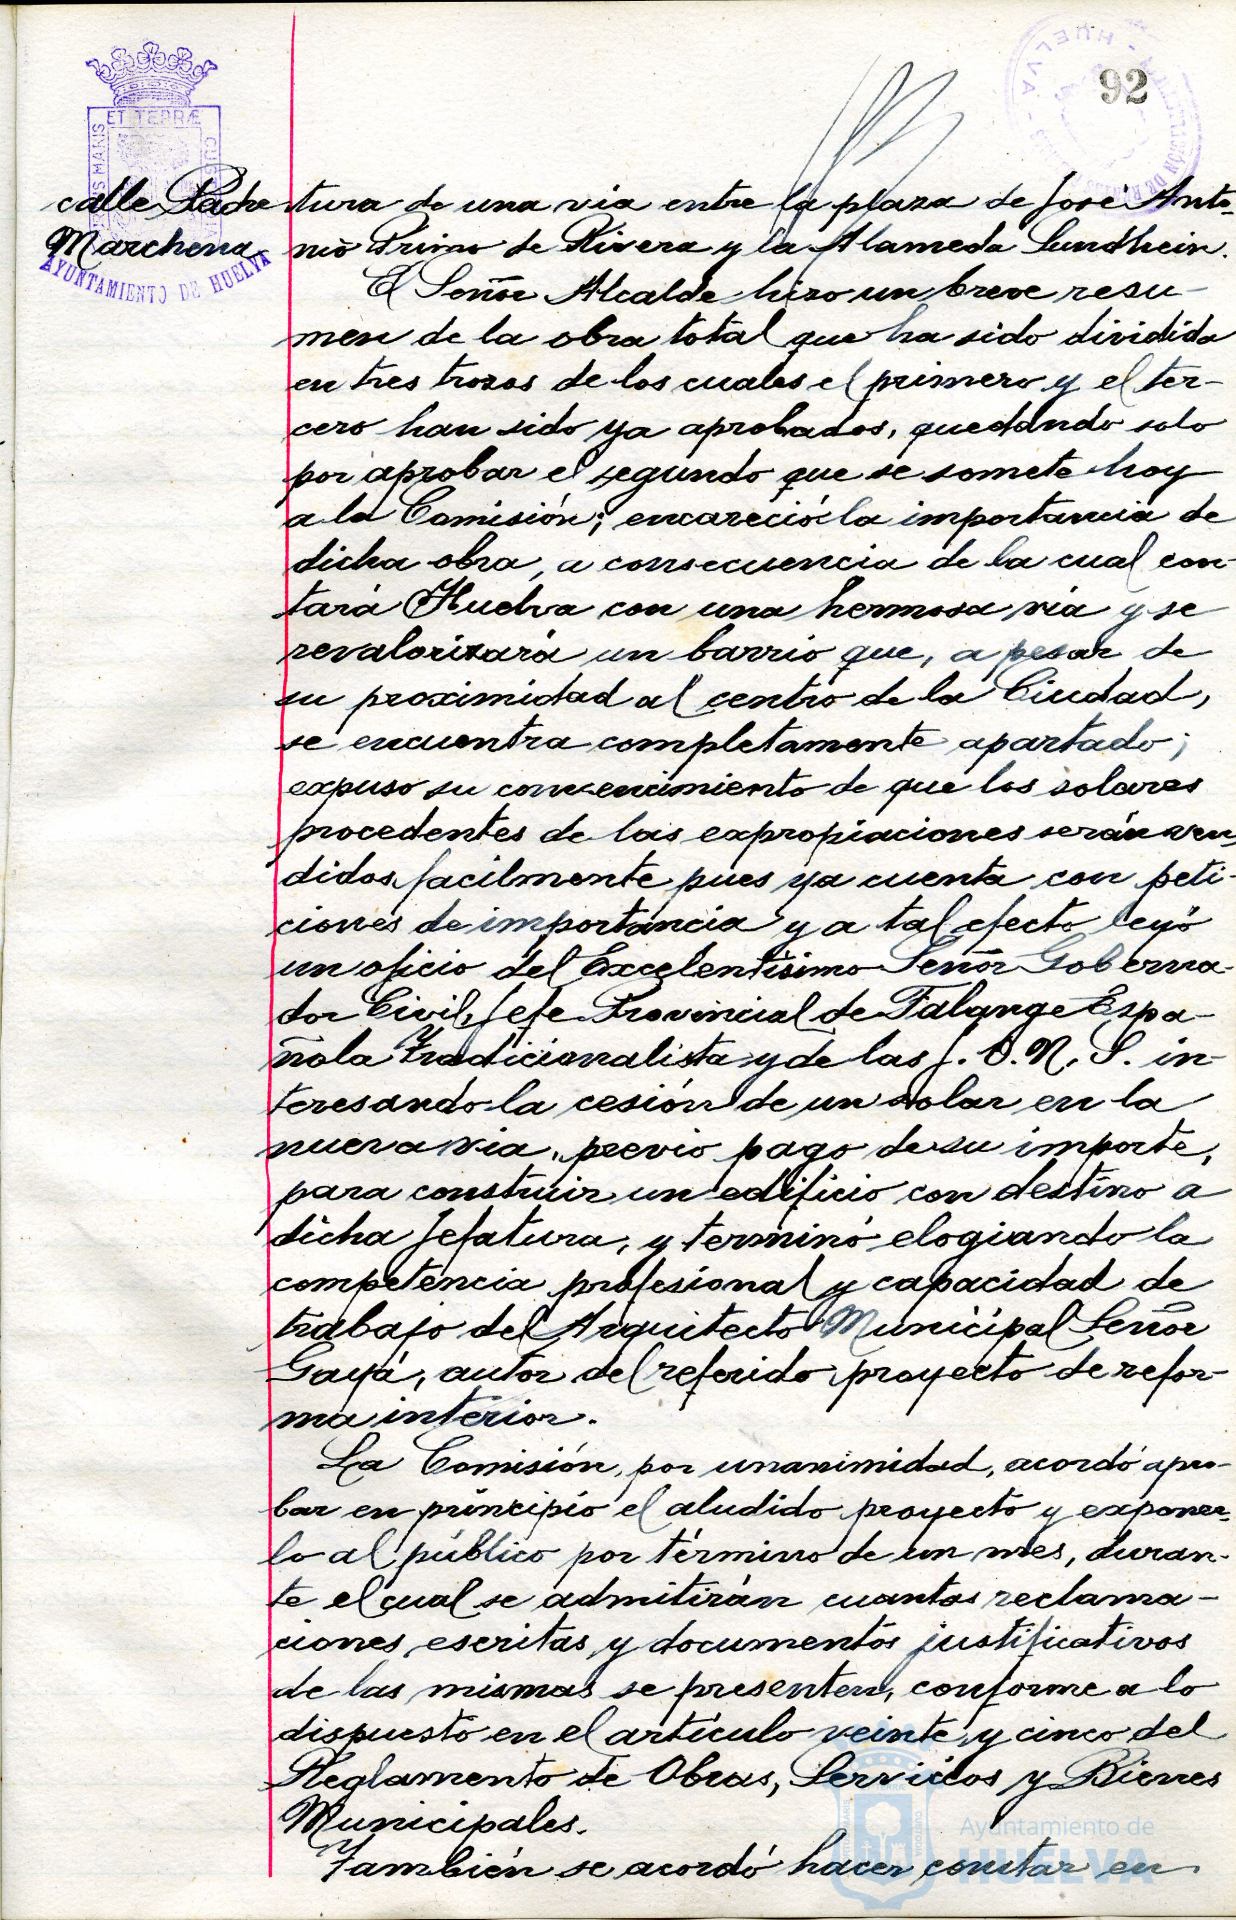 92
ET TERRÆ
calle Padre
Marchena
AYUNTAMIENTO DE HUELVA
tura de una via entre la plaza de José Anto-
nio Primo de Rivera y la Alameda Sundhein.
El Señor Alcalde hizo un breve resu-
men de la obra total que ha sido dividida
en tres trozos de los cuales el primero y el ter-
cero han sido ya aprobados, quedando solo
por aprobar el segundo que se somete hoy
a la Comisión; encareció la importancia de
dicha obra, a consecuencia de la cual con-
tará Huelva con una hermosa via y se
revalorizará un barrio que, a pesar de
su proximidad al centro de la Ciudad,
se encuentra completamente apartado;
expuso su convencimiento de que los solares
procedentes de las expropiaciones serán ven-
didos facilmente pues ya cuenta con peti-
ciones de importancia y a tal efecto leyó
un oficio del Excelentísimo Señor Goberna-
dor Civil, Jefe Provincial de Falange Espa-
ñola Tradicionalista y de las J. O. N. S. in-
teresando la cesión de un solar en la
nueva via, previo pago de su importe,
para construir un edificio con destino a
dicha Jefatura, y terminó elogiando la
competencia profesional y capacidad de
trabajo del Arquitecto Municipal Señor
Gayá, autor del referido proyecto de refor-
ma interior.
La Comisión, por unanimidad, acordó apro-
bar en principio el aludido proyecto y exponer-
lo al público por término de un mes, duran-
te el cual se admitirán cuantas reclama-
ciones escritas y documentos justificativos
de las mismas se presenten, conforme a lo
dispuesto en el artículo veinte y cinco del
Reglamento de Obras, Servicios y Bienes
Municipales.
También se acordó hacer constar en
Ayuntamiento de
HUELVA